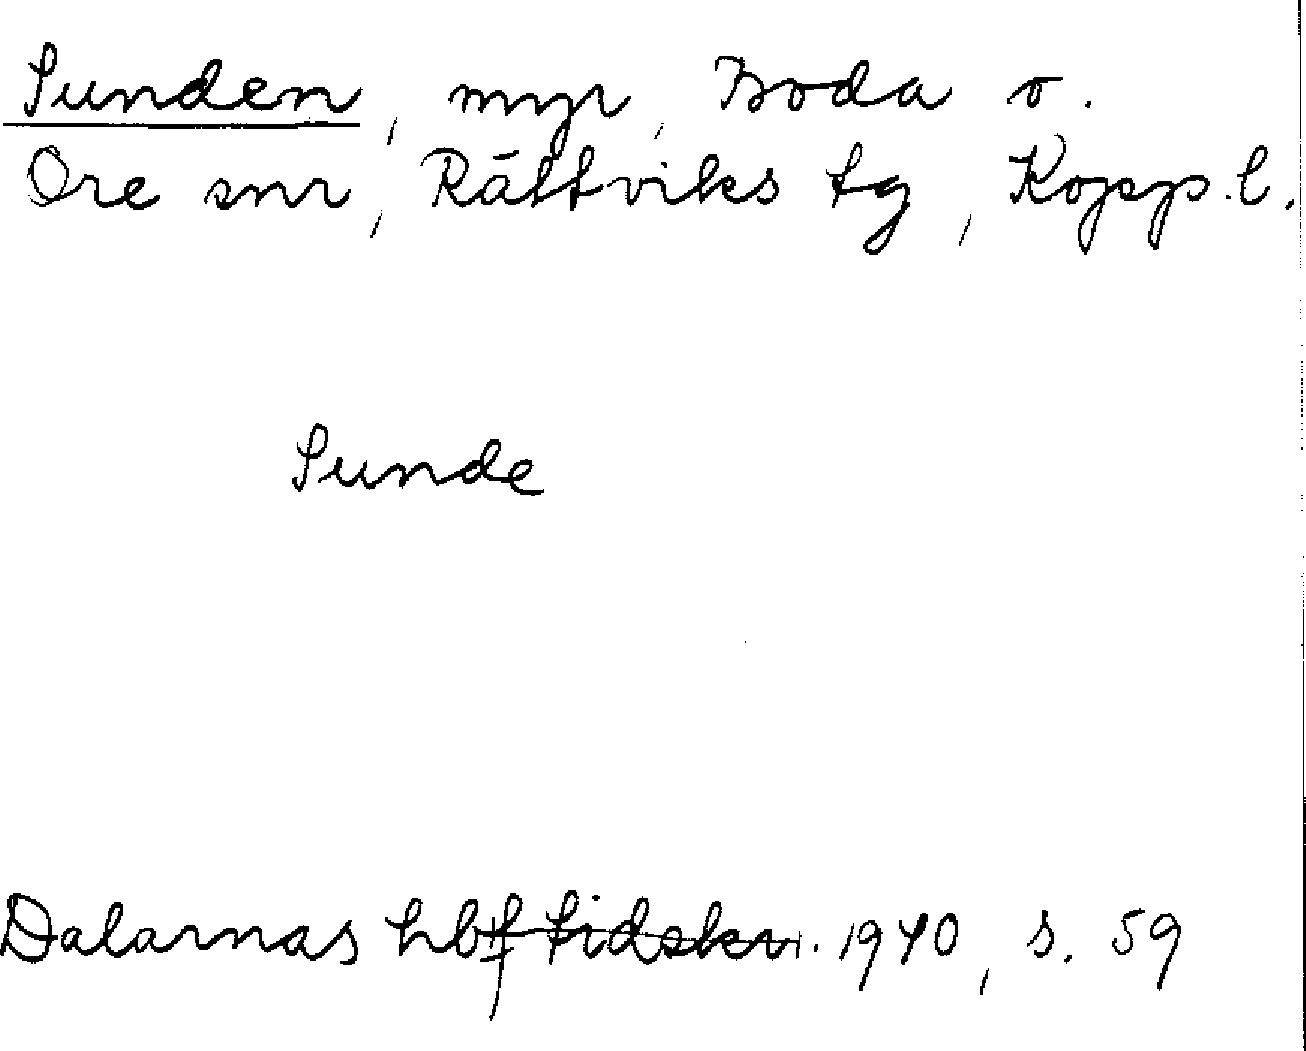 Sunden, myr, Boda o.
Ore snr, Rättviks tg, Kopp. l.
Sunde
Dalarnas hbf tidskr. 1940, s. 59